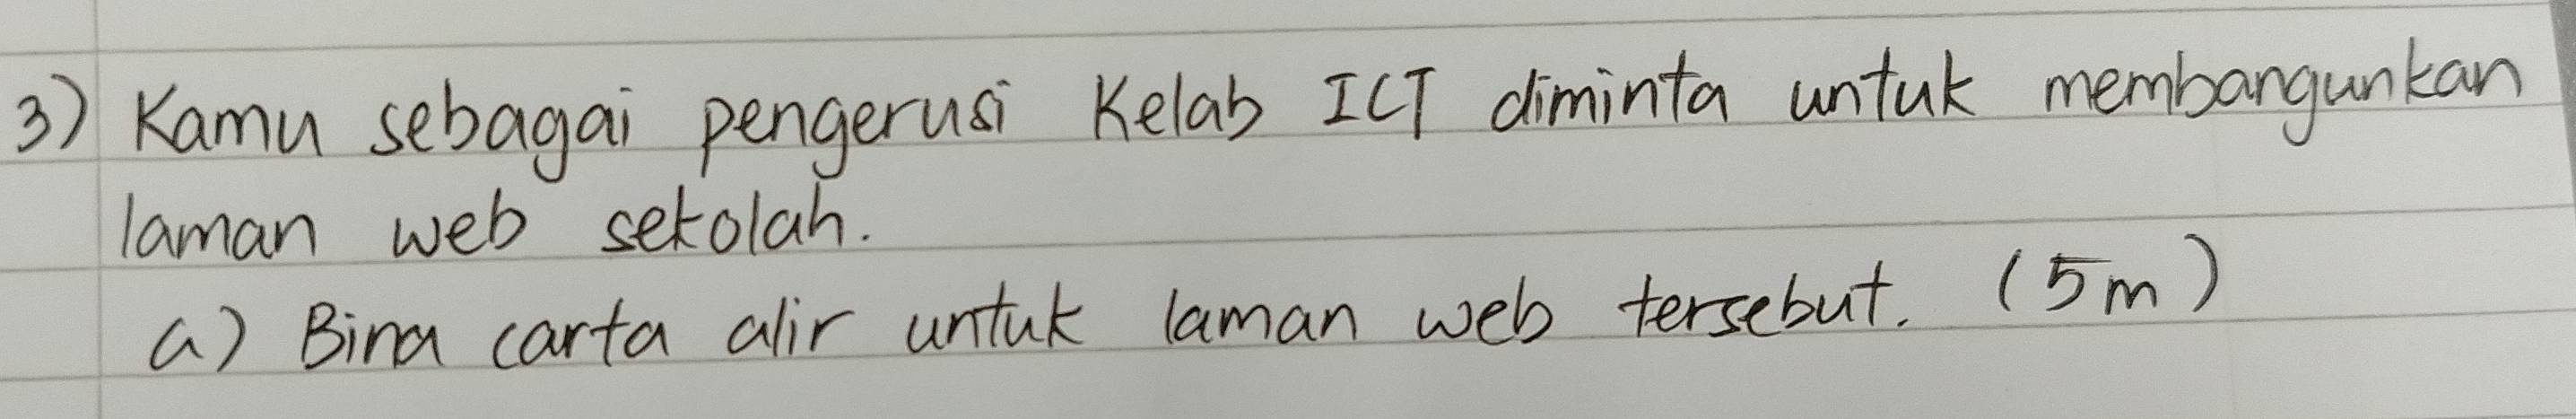 3) Kamu sebagai pengerusi Kelab ICT diminta untuk membangunkan
laman web sekolah.
a) Bina carta alir untuk laman web tersebut. (5m)